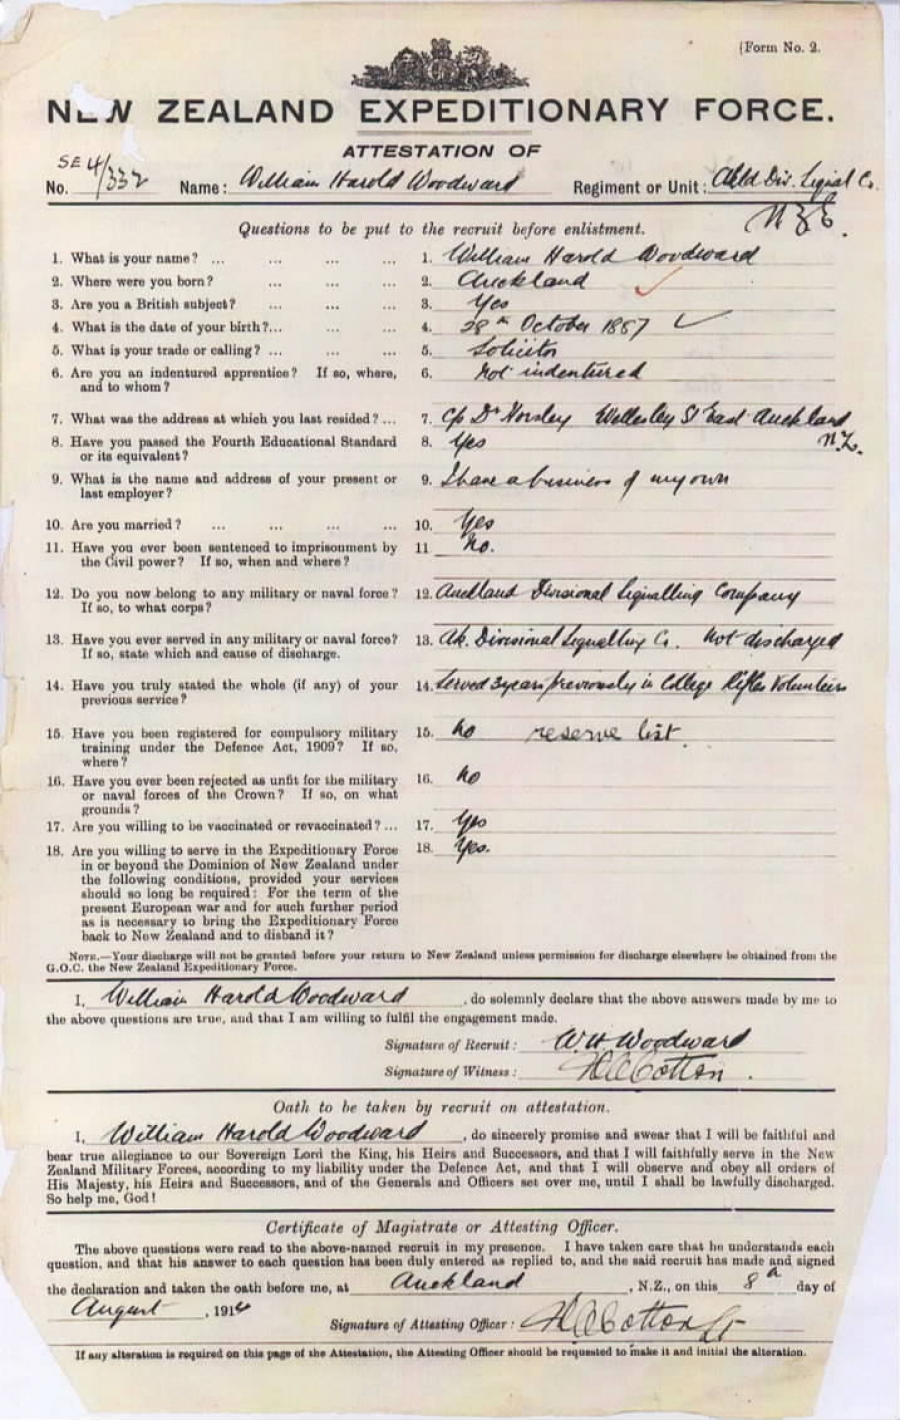 (Form No. 2.
NEW ZEALAND EXPEDITIONARY FORCE.
ATTESTATION OF
No. SE 4/332 Name: William Harold Woodward Regiment or Unit: Akld Div. Signal Co.
N Z E.
Questions to be put to the recruit before enlistment.
1. What is your name? ... ... ... 1. William Harold Woodward
2. Where were you born? ... ... ... 2. Auckland
3. Are you a British subject? ... ... ... 3. Yes
4. What is the date of your birth?... ... ... 4. 28th October 1887
5. What is your trade or calling? ... ... ... 5. Solicitor
6. Are you an indentured apprentice? If so, where, 6. Not indentured
and to whom?
7. What was the address at which you last resided? ... 7. C/o Dr Horsley Wellesley St East Auckland
8. Have you passed the Fourth Educational Standard 8. Yes N.Z.
or its equivalent?
9. What is the name and address of your present or 9. I have a business of my own
last employer?
10. Are you married? ... ... ... ... 10. Yes
11. Have you ever been sentenced to imprisonment by 11 No.
the Civil power? If so, when and where?
12. Do you now belong to any military or naval force? 12. Auckland Divisional Signalling Company
If so, to what corps?
13. Have you ever served in any military or naval force? 13. Ak. Divisional Signalling Co. Not discharged
If so, state which and cause of discharge.
14. Have you truly stated the whole (if any) of your 14. Served 3 years previously in College Rifles Volunteers
previous service?
15. Have you been registered for compulsory military 15. No reserve list.
training under the Defence Act, 1909? If so,
where?
16. Have you ever been rejected as unfit for the military 16. No
or naval forces of the Crown? If so, on what
grounds?
17. Are you willing to be vaccinated or revaccinated? ... 17. Yes
18. Are you willing to serve in the Expeditionary Force 18. Yes.
in or beyond the Dominion of New Zealand under
the following conditions, provided your services
should so long be required: For the term of the
present European war and for such further period
as is necessary to bring the Expeditionary Force
back to New Zealand and to disband it?
NOTE.—Your discharge will not be granted before your return to New Zealand unless permission for discharge elsewhere be obtained from the
G.O.C. the New Zealand Expeditionary Force.
I, William Harold Woodward, do solemnly declare that the above answers made by me to
the above questions are true, and that I am willing to fulfil the engagement made.
Signature of Recruit: W.H. Woodward
Signature of Witness: Cotton.
Oath to be taken by recruit on attestation.
I, William Harold Woodward, do sincerely promise and swear that I will be faithful and
bear true allegiance to our Sovereign Lord the King, his Heirs and Successors, and that I will faithfully serve in the New
Zealand Military Forces, according to my liability under the Defence Act, and that I will observe and obey all orders of
His Majesty, his Heirs and Successors, and of the Generals and Officers set over me, until I shall be lawfully discharged.
So help me, God!
Certificate of Magistrate or Attesting Officer.
The above questions were read to the above-named recruit in my presence. I have taken care that he understands each
question, and that his answer to each question has been duly entered as replied to, and the said recruit has made and signed
the declaration and taken the oath before me, at Auckland, N.Z., on this 8th day of
August, 1914
Signature of Attesting Officer: Cotton Lt
If any alteration is required on this page of the Attestation, the Attesting Officer should be requested to make it and initial the alteration.